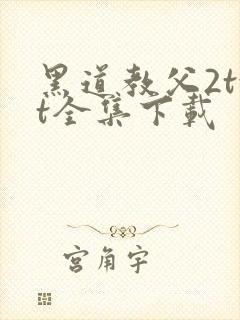 黑道教父2tx
t全集下载
宫角宇